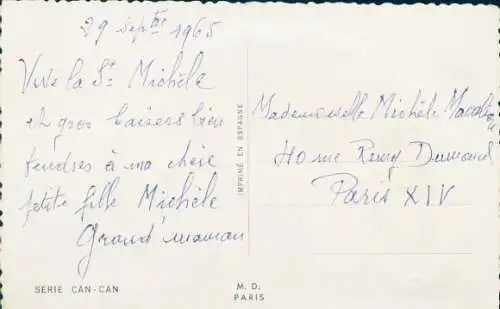 29 Septbre 1965
Vive la St Michèle
et gros baisers bien
tendres à ma chère
petite fille Michèle
Grand'maman
Mademoiselle Michèle
40 rue Remy Dumoncel
Paris XIV
IMPRIMÉ EN ESPAGNE
SERIE CAN-CAN
M. D.
PARIS